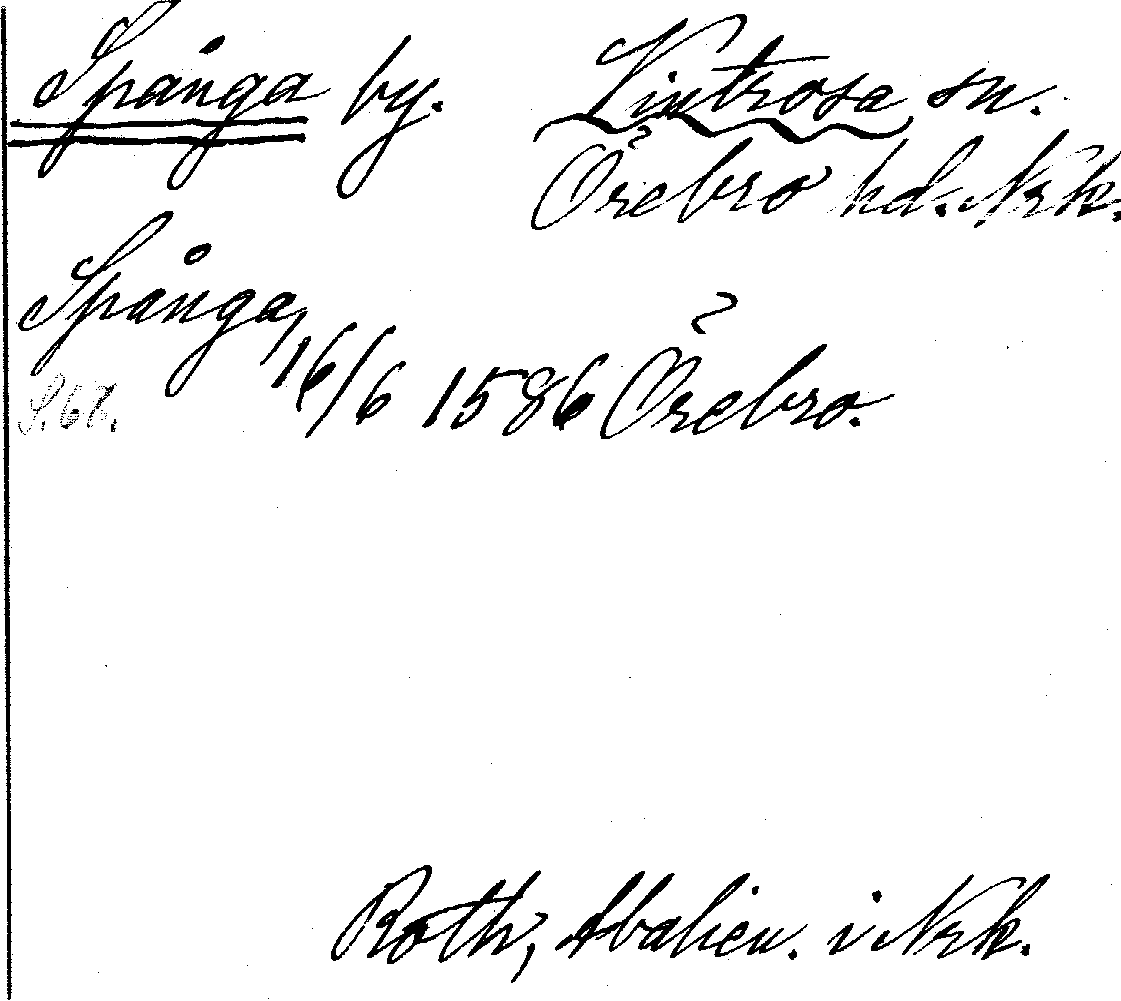 Spånga by. Vintrosa sn.
Örebro hd. Nrk.
Spånga, 16/6 1586 Örebro.
S. 68.
Roth, Abalien. i Nrk.